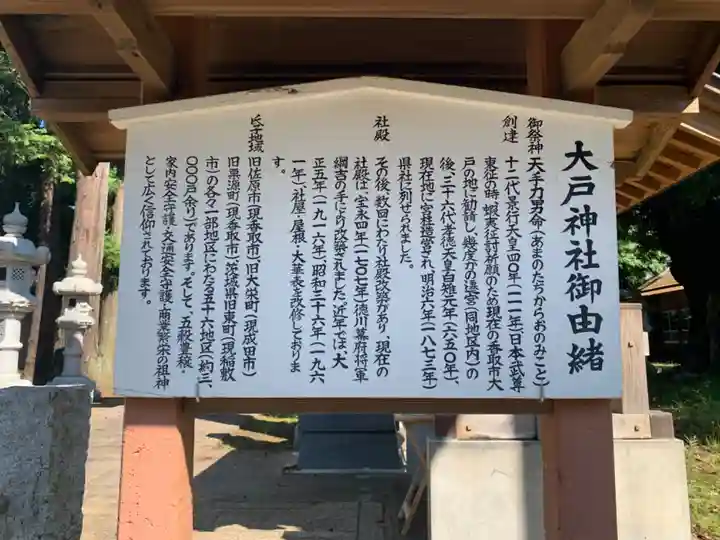 大戸神社御由緒
御祭神 天手力男命(あまのたぢからおのみこと)
創建 十二代景行天皇四〇年(一一一年)日本武尊
東征の時、蝦夷征討祈願のため現在の香取市大
戸の地に勧請し、幾度かの遷宮(同地区内)の
後、三十六代孝徳天皇白雉元年(六五〇年)、
現在地に宮柱造営され、明治六年(一八七三年)
県社に列せられました。
社殿 その後、数回にわたり社殿改築があり、現在の
社殿は、宝永四年(一七〇七年)徳川幕府将軍
綱吉の手により改築されました。近年では、大
正五年(一九一六年)、昭和三十六年(一九六
一年)、社屋・屋根・大華表を改修しておりま
す。
氏子地域 旧佐原市(現香取市)旧大栄町(現成田市)
旧栗源町(現香取市)茨城県旧東町(現稲敷
市)の各々一部地区にわたる五十六地区(約三
〇〇〇戸余り)であります。そして、五穀豊穣・
家内安全守護・交通安全守護・商業繁栄の祖神
として広く信仰されております。